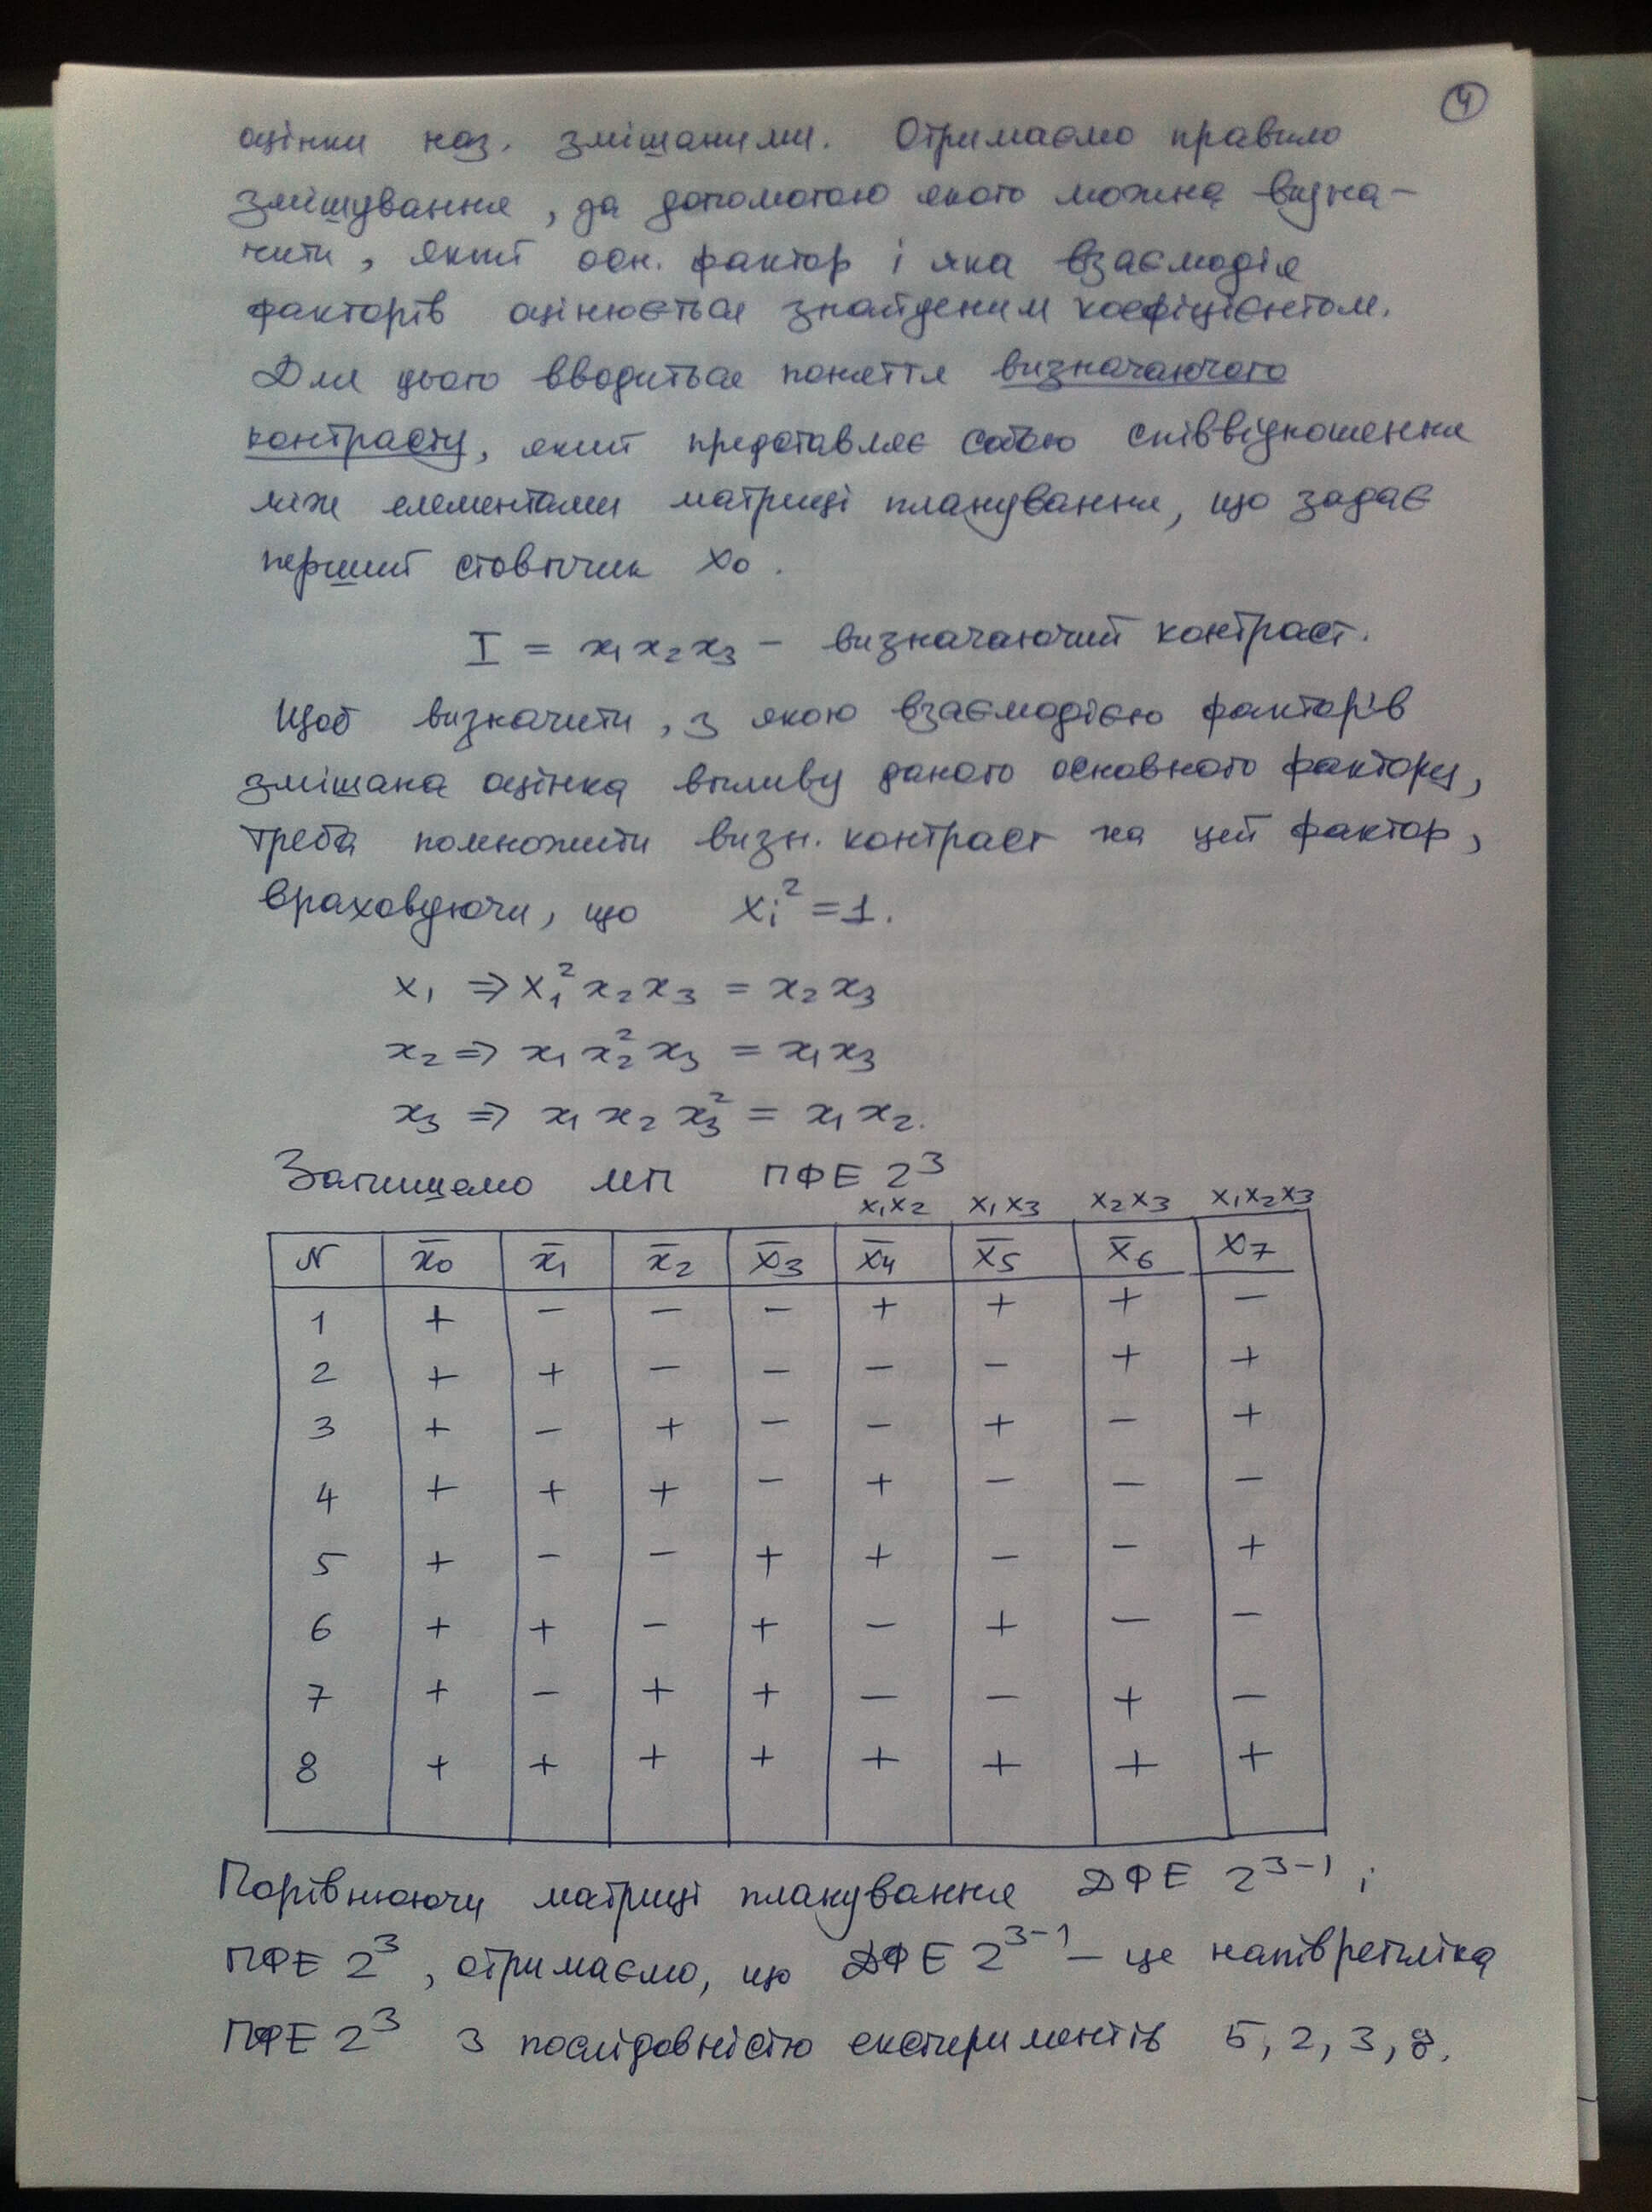 4
оцінки наз. змішаними. Отримаємо правило
змішування, за допомогою якого можна визна-
чити, який осн. фактор і яка взаємодія
факторів оцінюється знайденим коефіцієнтом.
Для цього вводиться поняття визначаючого
контрасту, який представляє собою співвідношення
між елементами матриці планування, що задає
перший стовпчик x₀.
I = x₁x₂x₃ – визначаючий контраст.
Щоб визначити, з якою взаємодією факторів
змішана оцінка впливу даного основного фактору,
треба помножити визн. контраст на цей фактор,
враховуючи, що xᵢ² = 1.
x₁ ⇒ x₁² x₂ x₃ = x₂ x₃
x₂ ⇒ x₁ x₂² x₃ = x₁ x₃
x₃ ⇒ x₁ x₂ x₃² = x₁ x₂.
Запишемо МП ПФЕ 2³
x₁x₂ x₁x₃ x₂x₃ x₁x₂x₃
N x̄₀ x̄₁ x̄₂ x̄₃ x̄₄ x̄₅ x̄₆ x̄₇
1 + – – – + + + –
2 + + – – – – + +
3 + – + – – + – +
4 + + + – + – – –
5 + – – + + – – +
6 + + – + – + – –
7 + – + + – – + –
8 + + + + + + + +
Порівнюючи матриці планування ДФЕ 2³⁻¹ і
ПФЕ 2³, отримаємо, що ДФЕ 2³⁻¹ – це напіврепліка
ПФЕ 2³ з послідовністю експериментів 5, 2, 3, 8.